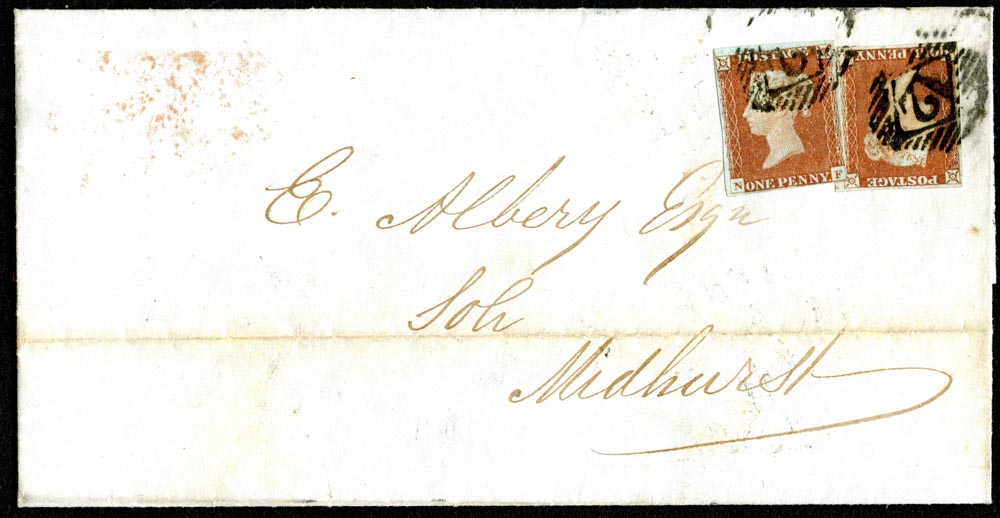 POSTAGE
N ONE PENNY F
POSTAGE
ONE PENNY
E. Albery Esqr
Solr
Midhurst